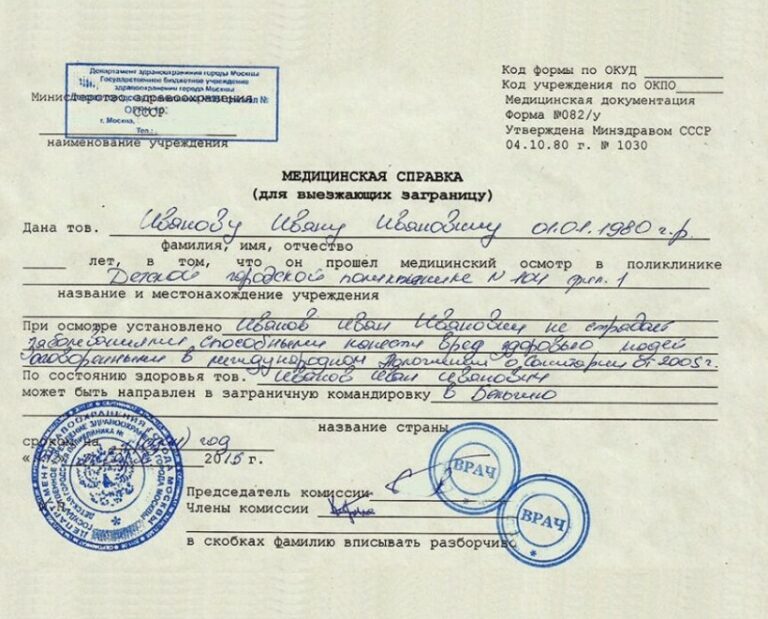 Департамент здравоохранения города Москвы
Государственное бюджетное учреждение
здравоохранения города Москвы
Министерство здравоохранения
СССР
г. Москва,
Тел.:
наименование учреждения
Код формы по ОКУД
Код учреждения по ОКПО
Медицинская документация
Форма №082/у
Утверждена Минздравом СССР
04.10.80 г. № 1030
МЕДИЦИНСКАЯ СПРАВКА
(для выезжающих заграницу)
Дана тов. Иванову Ивану Ивановичу 01.01.1980 г.р.
фамилия, имя, отчество
лет, в том, что он прошел медицинский осмотр в поликлинике
Детской городской поликлинике N 104 фил. 1
название и местонахождение учреждения
При осмотре установлено Иванов Иван Иванович не страдает
заболеваниями способными нанести вред здоровью людей
оговоренными в международном Положении о Санитарии от 2005 г.
По состоянию здоровья тов. Иванов Иван Иванович
может быть направлен в заграничную командировку в
название страны
сроком на 1 (один) год
2015 г.
Председатель комиссии
Члены комиссии
в скобках фамилию вписывать разборчиво
ВРАЧ
ВРАЧ